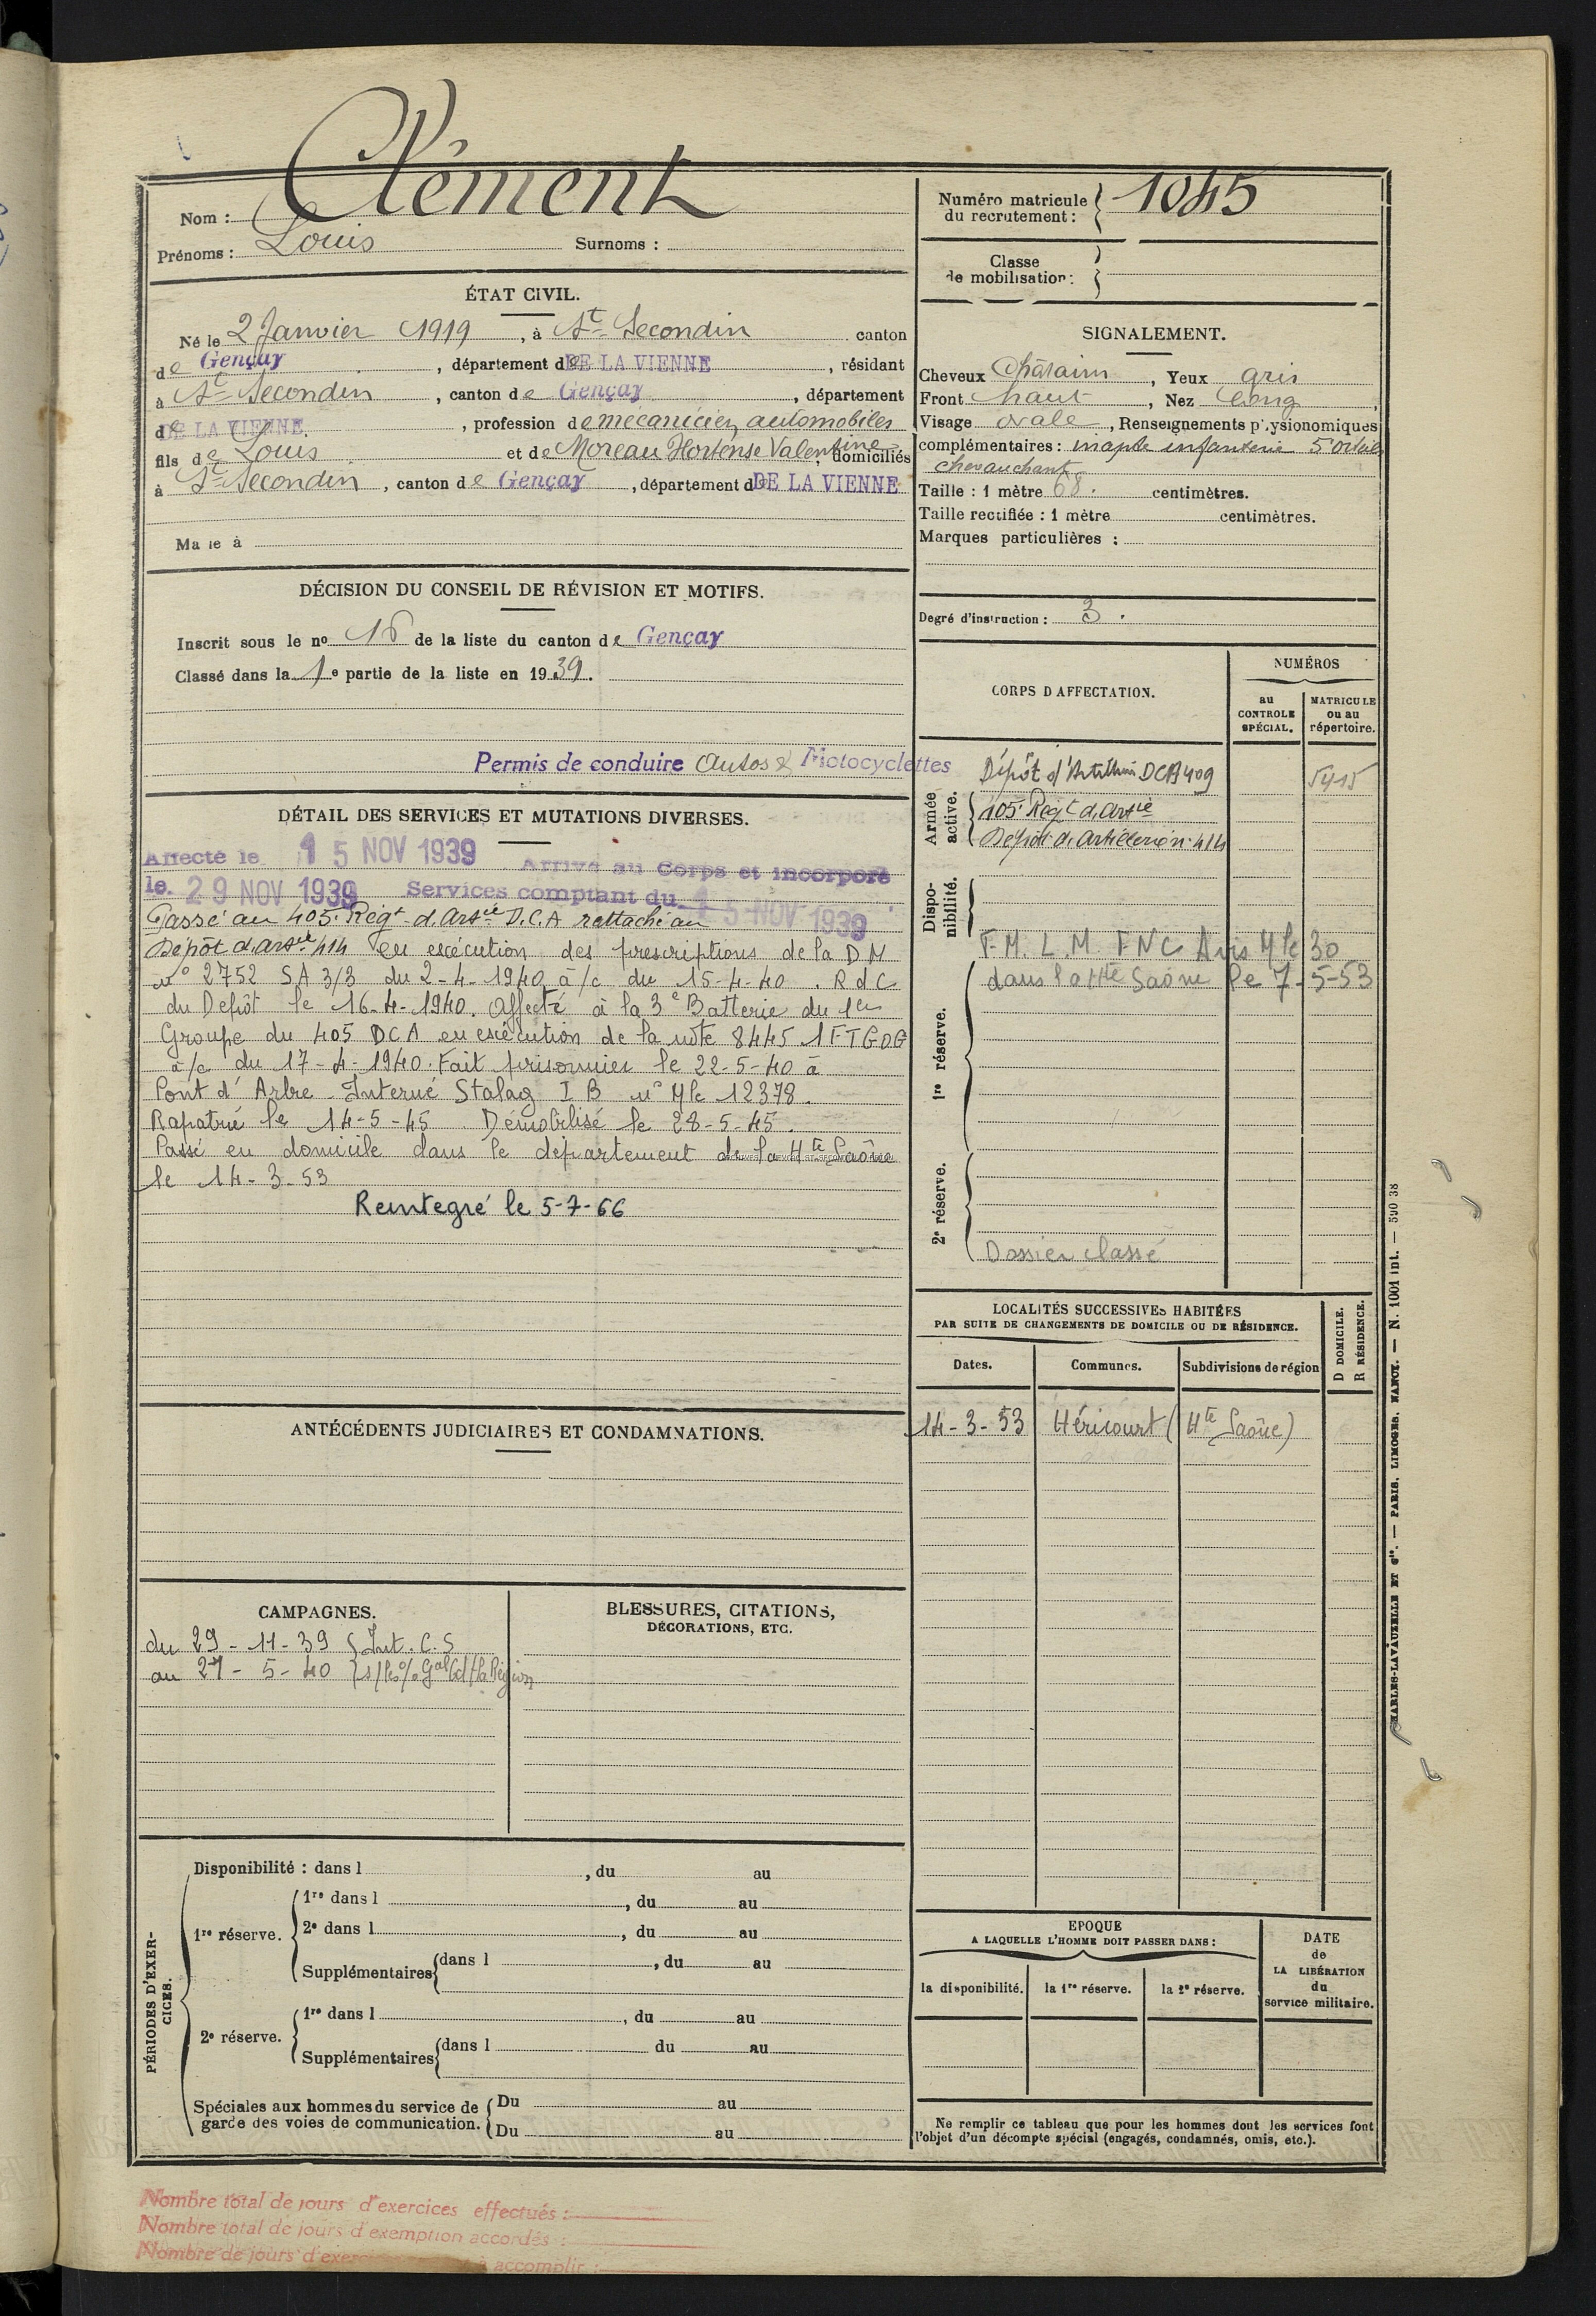 Nom : Clément
Prénoms : Louis Surnoms :
ÉTAT CIVIL.
Né le 2 Janvier 1919, à St Secondin canton
de Gençay, département de DE LA VIENNE, résidant
à St Secondin, canton de Gençay, département
de DE LA VIENNE., profession de mécanicien automobiles
fils de Louis et de Moreau Hortense Valentine domiciliés
à St Secondin, canton de Gençay, département de DE LA VIENNE
Ma ié à
DÉCISION DU CONSEIL DE RÉVISION ET MOTIFS.
Inscrit sous le no 16 de la liste du canton de Gençay
Classé dans la 1e partie de la liste en 1939.
Permis de conduire Autos & Motocyclettes
DÉTAIL DES SERVICES ET MUTATIONS DIVERSES.
Affecté le 15 NOV 1939 Arrivé au Corps et incorporé
le. 29 NOV 1939 Services comptant du 15 NOV 1939
Passé au 405e Régt d'Artie D.C.A rattaché au
Dépôt d'Artie 414 en exécution des prescriptions de la DM
no 2752 SA 3/3 du 2-4-1940 à/c du 15-4-40. RdC
du Dépôt le 16-4-1940. Affecté à la 3e Batterie du 1er
Groupe du 405 DCA en exécution de la note 8445 1FTGDG
à/c du 17-4-1940. Fait prisonnier le 22-5-40 à
Pont d'Arbre - Interné Stalag I B no Mle 12378.
Rapatrié le 14-5-45 Démobilisé le 28-5-45.
Passé en domicile dans le département de la Hte Saône
le 14-3-53
Reintegré le 5-7-66
ANTÉCÉDENTS JUDICIAIRES ET CONDAMNATIONS.
CAMPAGNES.
du 29-11-39 Int. C.S
au 21-5-40
BLESSURES, CITATIONS,
DÉCORATIONS, ETC.
PÉRIODES D'EXER-
CICES.
Disponibilité : dans l , du au
1re réserve.
1re dans l , du au
2e dans l , du au
Supplémentaires dans l , du au
2e réserve.
1re dans l , du au
Supplémentaires dans l du au
Spéciales aux hommes du service de
garde des voies de communication.
Du au
Du au
Nombre total de jours d'exercices effectués :
Nombre total de jours d'exemption accordés :
Nombre de jours d'exer à accomplir :
Numéro matricule
du recrutement : 1045
Classe
de mobilisation :
SIGNALEMENT.
Cheveux Châtain, Yeux gris
Front haut, Nez long,
Visage ovale, Renseignements p ysionomiques
complémentaires : inapte infanterie 5e orteil
chevauchant
Taille : 1 mètre 68. centimètres.
Taille rectifiée : 1 mètre centimètres.
Marques particulières :
Degré d'instruction : 3.
CORPS D'AFFECTATION.
NUMÉROS
au
CONTROLE
SPÉCIAL.
MATRICULE
ou au
répertoire.
Armée
active.
Dépôt d'Artillerie DCA 409 5415
405e Régt d'Artie
Dépôt d'Artillerie no 414
Dispo-
nibilité.
F.M. L.M. FNC Avis Mle 30
dans la Hte Saône le 7-5-53
1re réserve.
2e réserve.
Dossier classé
LOCALITÉS SUCCESSIVES HABITÉES
PAR SUITE DE CHANGEMENTS DE DOMICILE OU DE RÉSIDENCE.
Dates. Communes. Subdivisions de région
D DOMICILE.
R RÉSIDENCE.
14-3-53 Héricourt (Hte Saône)
EPOQUE
A LAQUELLE L'HOMME DOIT PASSER DANS :
la disponibilité. la 1re réserve. la 2e réserve.
DATE
de
LA LIBÉRATION
du
service militaire.
Ne remplir ce tableau que pour les hommes dont les services font
l'objet d'un décompte spécial (engagés, condamnés, omis, etc.).
CHARLES-LAVAUZELLE ET Cie. — PARIS, LIMOGES, NANCY. — N. 1001 int. — 590 38